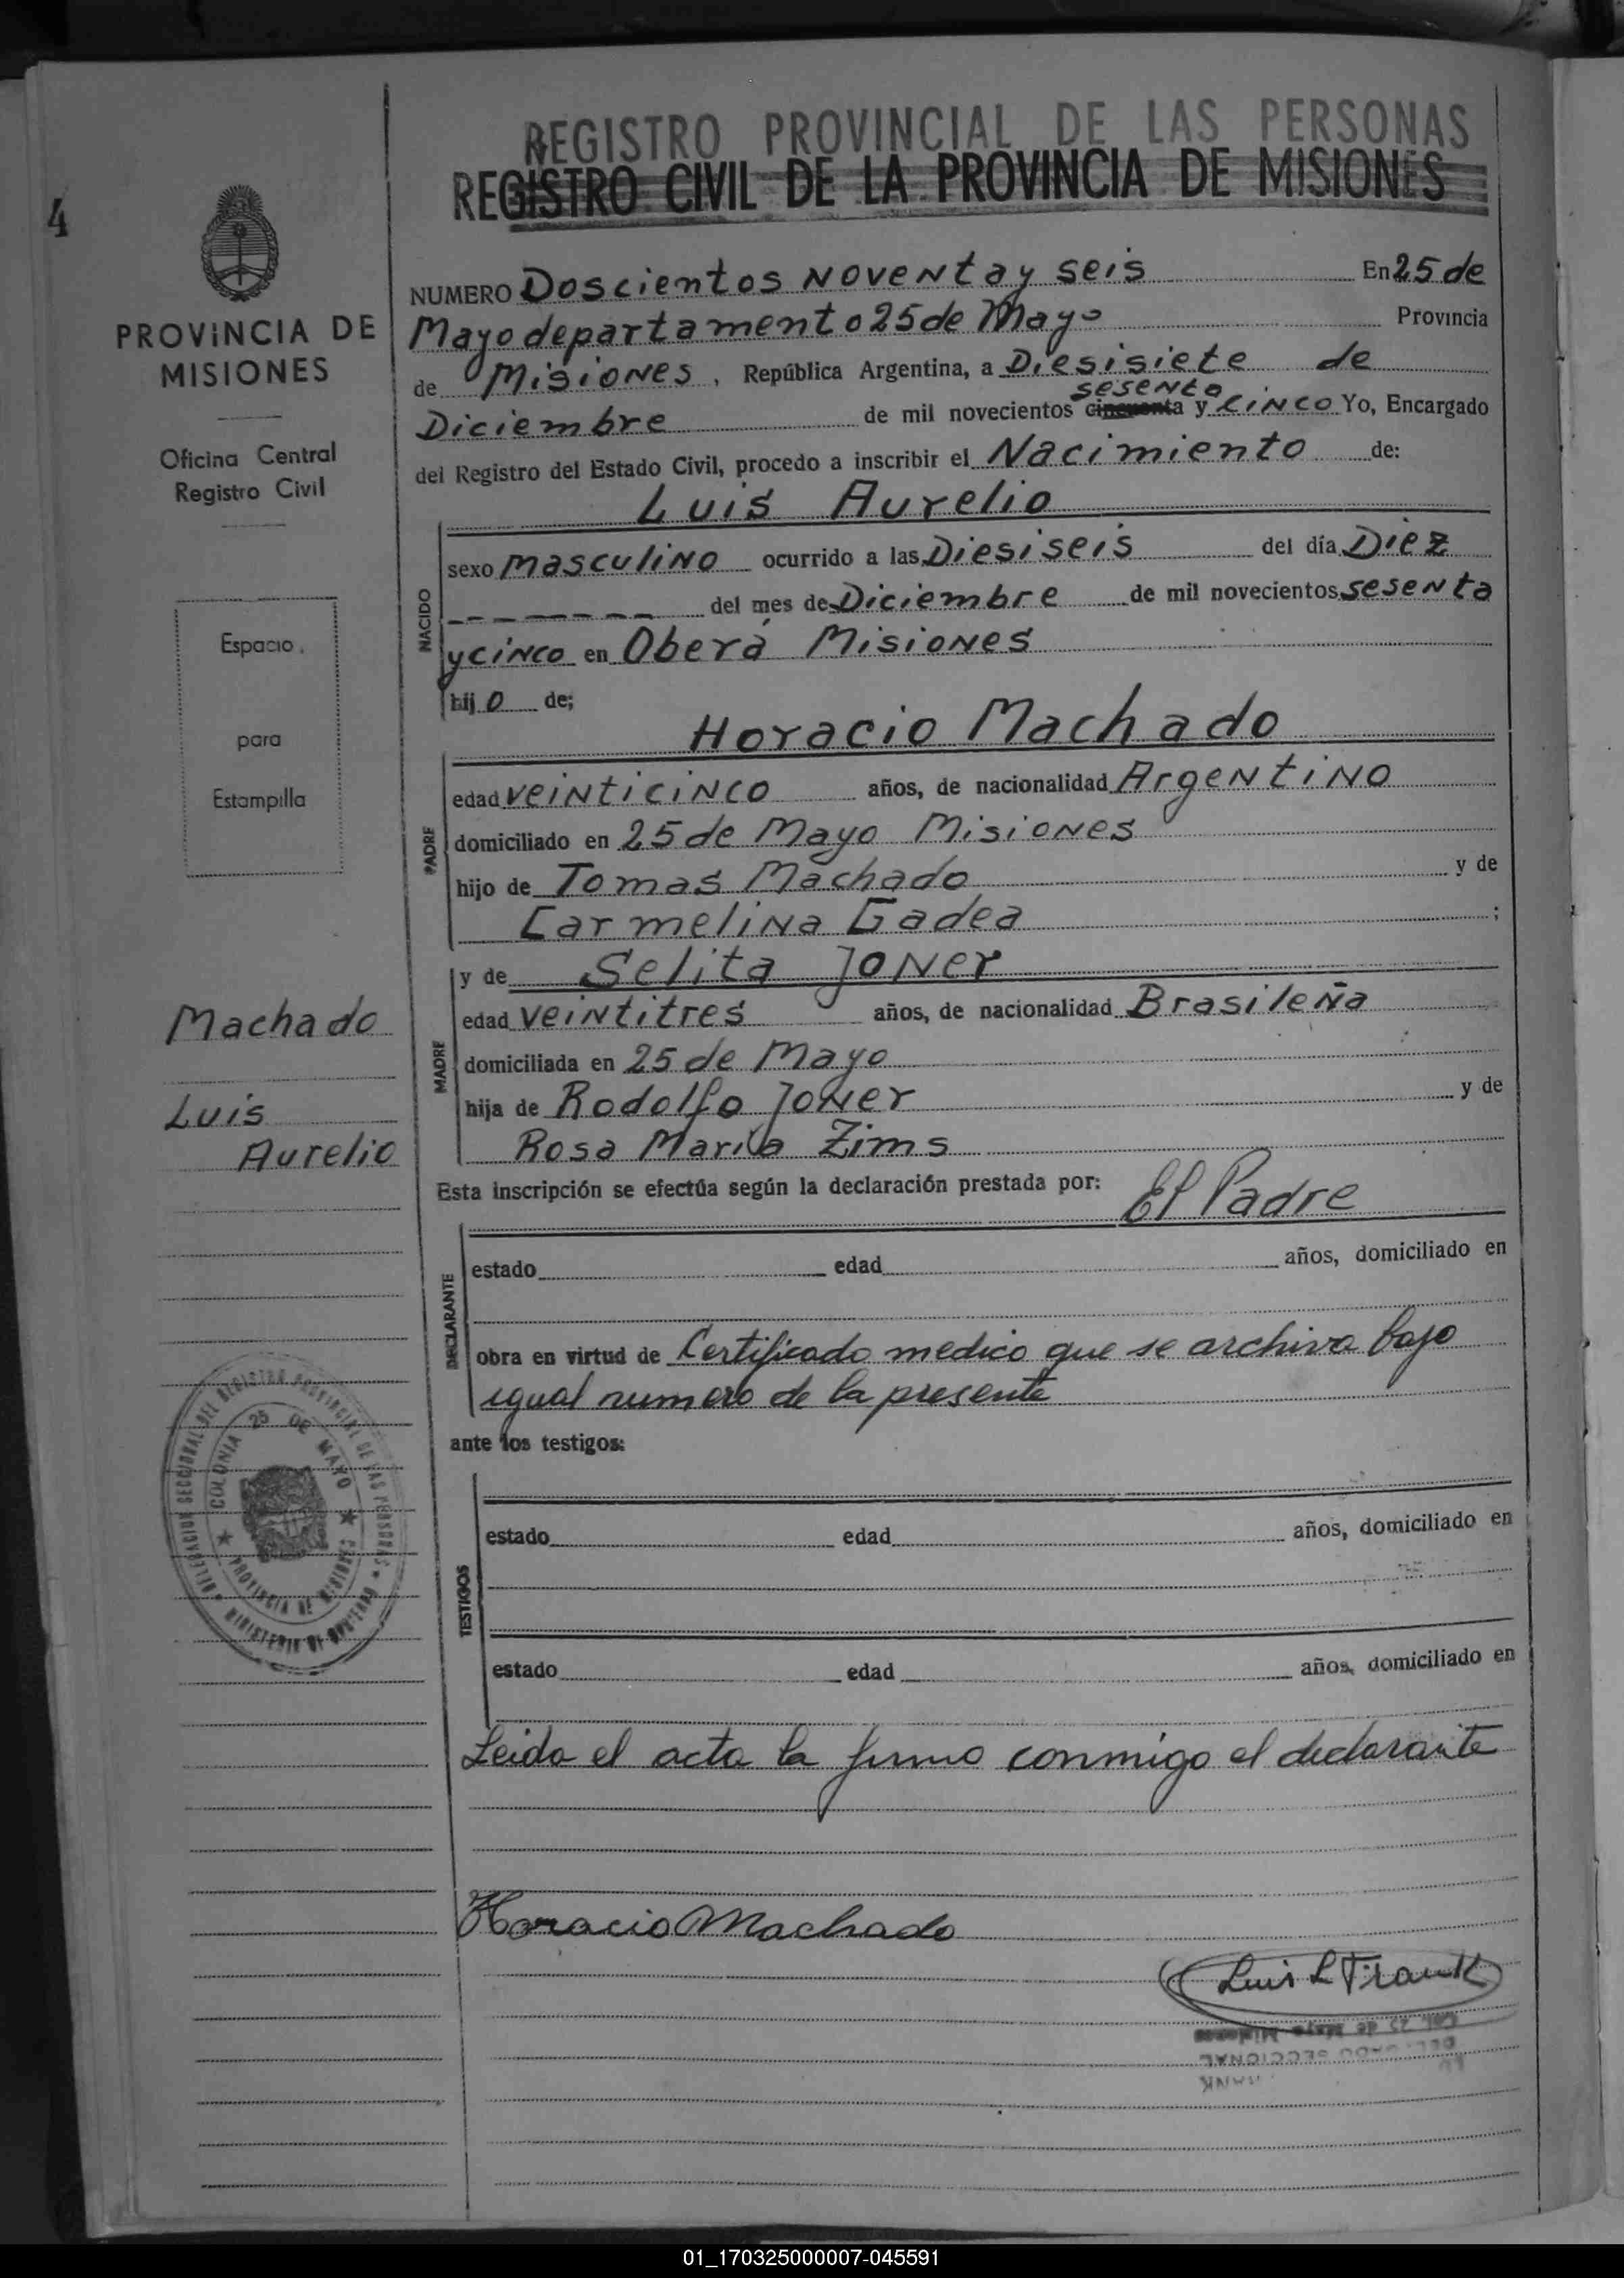 4
PROVINCIA DE
MISIONES
Oficina Central
Registro Civil
Espacio
para
Estampilla
Machado
Luis
Aurelio
DELEGACION SECCIONAL DEL REGISTRO PROVINCIAL DE LAS PERSONAS
COLONIA 25 DE MAYO
PROVINCIA DE
MINISTERIO DE GOBIERNO
REGISTRO PROVINCIAL DE LAS PERSONAS
REGISTRO CIVIL DE LA PROVINCIA DE MISIONES
NUMERO Doscientos Noventa y seis En 25 de
Mayo departamento 25 de Mayo Provincia
de Misiones, República Argentina, a Diesisiete de
sesenta
Diciembre de mil novecientos cincuenta y cinco Yo, Encargado
del Registro del Estado Civil, procedo a inscribir el Nacimiento de:
Luis Aurelio
NACIDO
sexo masculino ocurrido a las Diesiseis del día Diez
_ _ _ _ _ _ _ del mes de Diciembre de mil novecientos sesenta
y cinco en Oberá Misiones
hijo de;
Horacio Machado
PADRE
edad veinticinco años, de nacionalidad Argentino
domiciliado en 25 de Mayo Misiones
hijo de Tomas Machado y de
Carmelina Gadea ;
y de Selita Joner
MADRE
edad veintitres años, de nacionalidad Brasileña
domiciliada en 25 de Mayo
hija de Rodolfo Joner y de
Rosa Maria Zims
Esta inscripción se efectúa según la declaración prestada por: El Padre
DECLARANTE
estado edad años, domiciliado en
obra en virtud de Certificado medico que se archiva bajo
igual numero de la presente
ante los testigos:
TESTIGOS
estado edad años, domiciliado en
estado edad años, domiciliado en
Leida el acta la firma conmigo el declarante
Horacio Machado
Luis L Frank
01_170325000007-045591